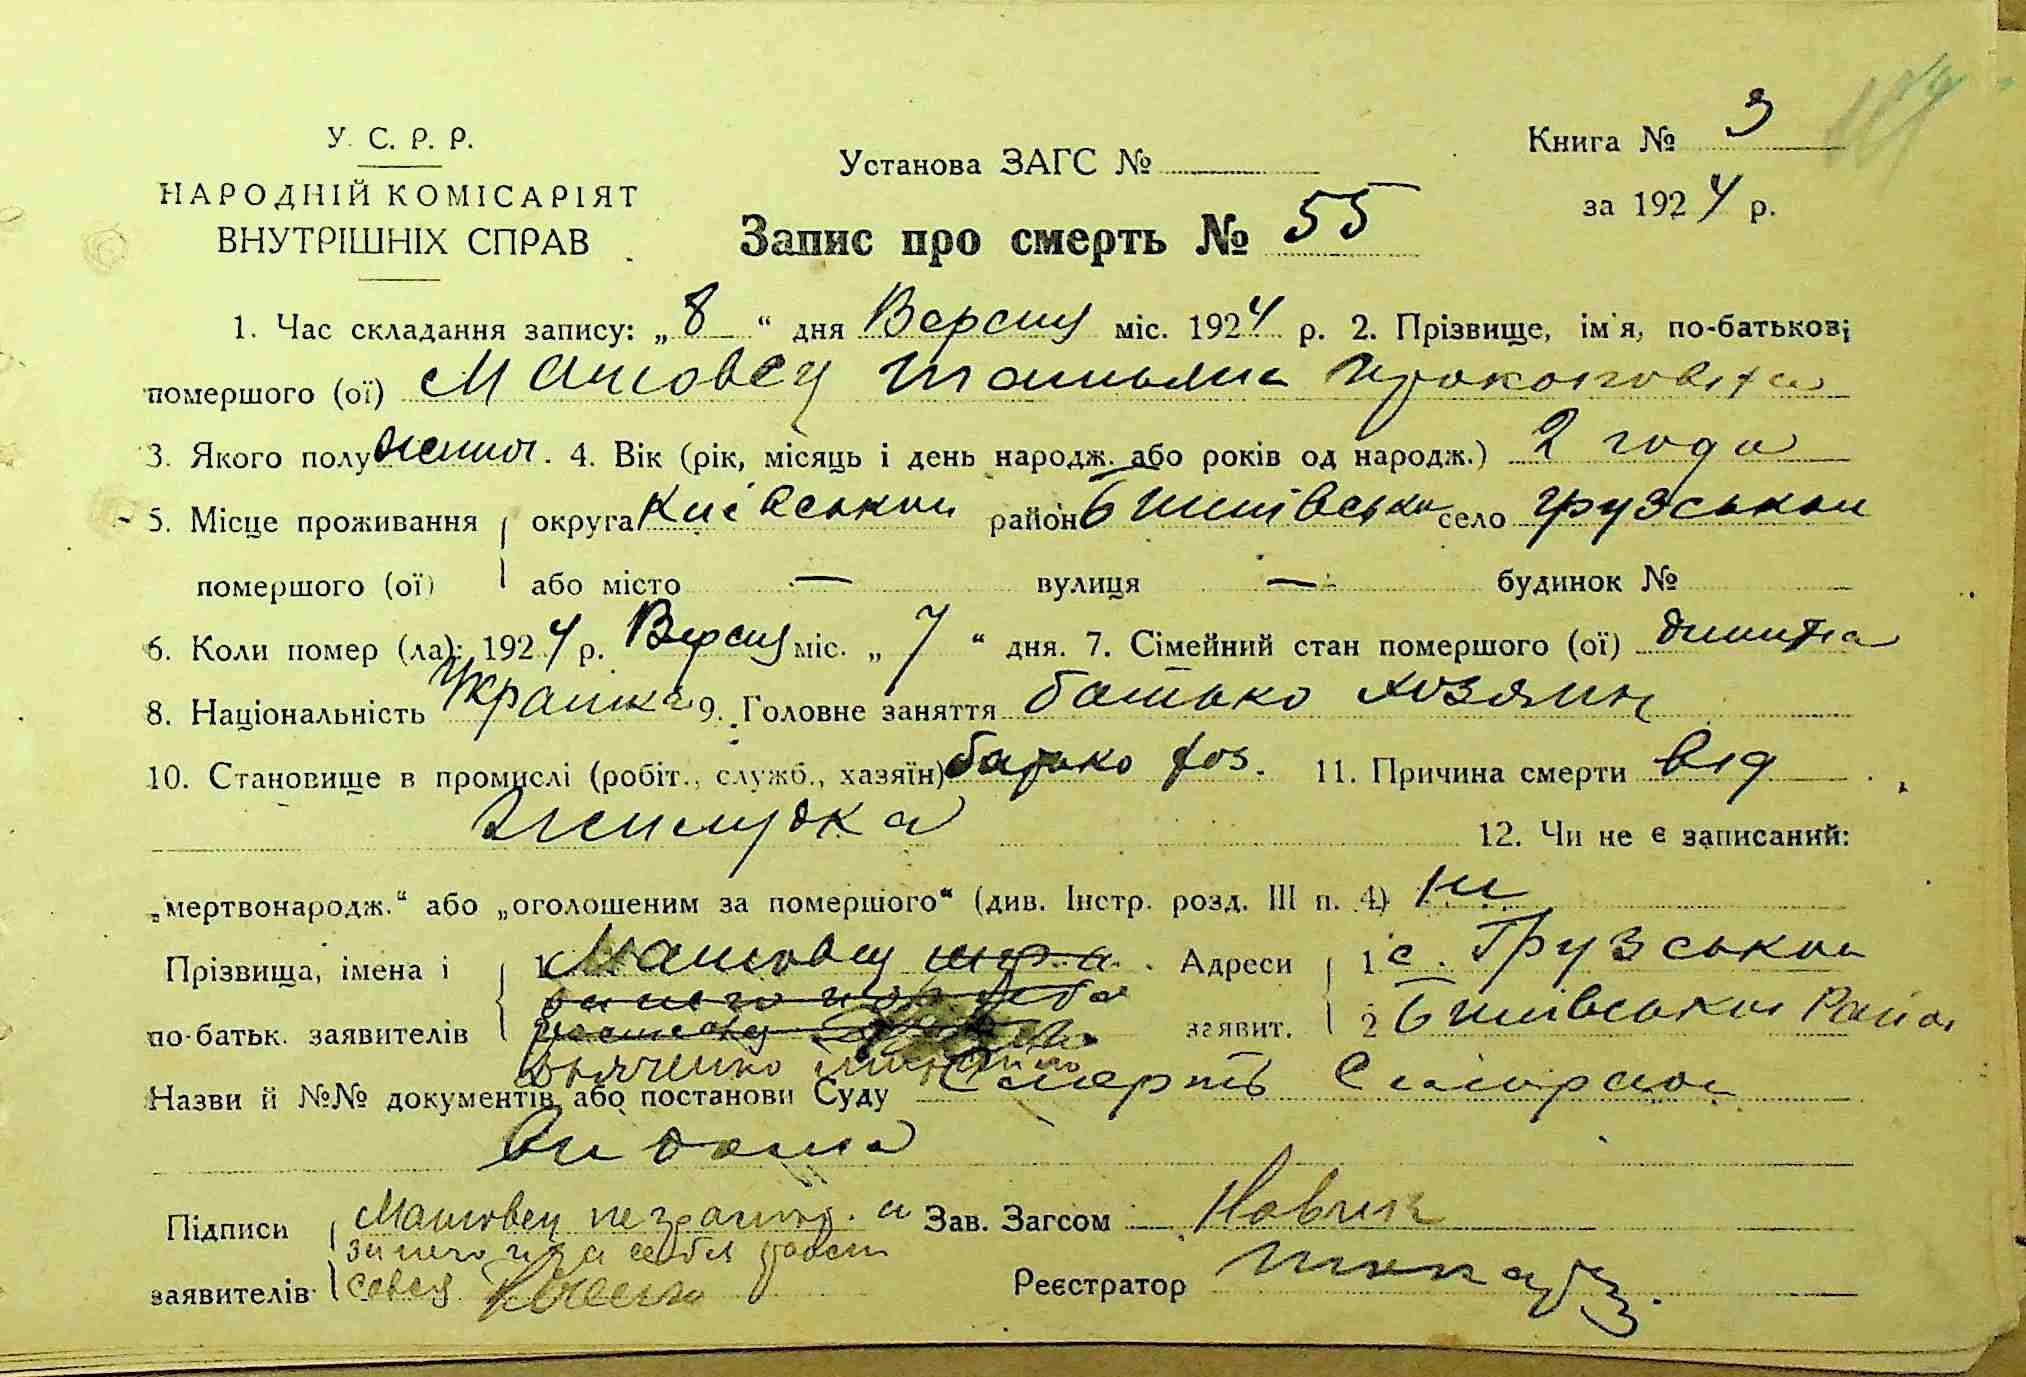 У. С. Р. Р.
НАРОДНІЙ КОМІСАРІЯТ
ВНУТРІШНІХ СПРАВ
Установа ЗАГС №
Книга № 3
за 1924 р.
Запис про смерть № 55
1. Час складання запису: „8“ дня Версну міс. 1924 р. 2. Прізвище, ім'я, по-батькові
помершого (ої) Машовец Татьяна Прокоповна
3. Якого полу женш. 4. Вік (рік, місяць і день народж. або років од народж.) 2 года
5. Місце проживання округа Київськои район Бишівськи село Грузськои
помершого (ої) або місто — вулиця — будинок №
6. Коли помер (ла): 1924 р. Версну міс. „7“ дня. 7. Сімейний стан помершого (ої) дитина
8. Національність Украинка 9. Головне заняття батько хозяин
10. Становище в промислі (робіт., служб., хазяїн) батько хоз. 11. Причина смерти від
желудка 12. Чи не є записаний:
„мертвонародж.“ або „оголошеним за помершого“ (див. Інстр. розд. III п. 4) ни
Прізвища, імена і 1 Машовец Адреси 1 с. Грузськои
по-батьк. заявителів заявит. 2 Бишівськи Район
Дьяченко
Назви й №№ документів або постанови Суду Смерть
Підписи Машовец неграмот. а Зав. Загсом Новик
за него и за себя
заявителів Реєстратор